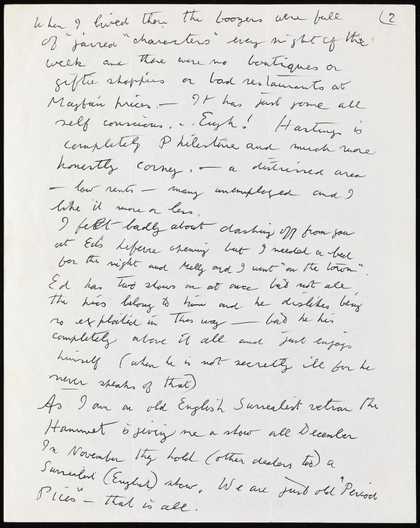 2
When I lived there the boozers were full
of "jarred" "characters" every night of the
week and there were no boutiques or
giftie shoppies or bad restaurants at
Mayfair prices. — It has just gone all
self conscious. .. Eugh! Hastings is
completely Philistine and much more
honestly corney. — a distressed area
— low rents — many unemployed and I
like it more or less.
I felt badly about dashing off from you
at Ed's Lefevre opening but I needed a bed
for the night and Melly and I went "on the town".
Ed has two shows on at once but not all
the pics belong to him and he dislikes being
so exploited in this way — but he is
completely above it all and just enjoys
himself (when he is not secretly ill for he
never speaks of that)
As I am an old English Surrealist vetran the
Hammet is giving me a show all December
In November they hold (other dealers too) a
Surrealist (English) show. We are just old "Period
Pieces" — that is all.